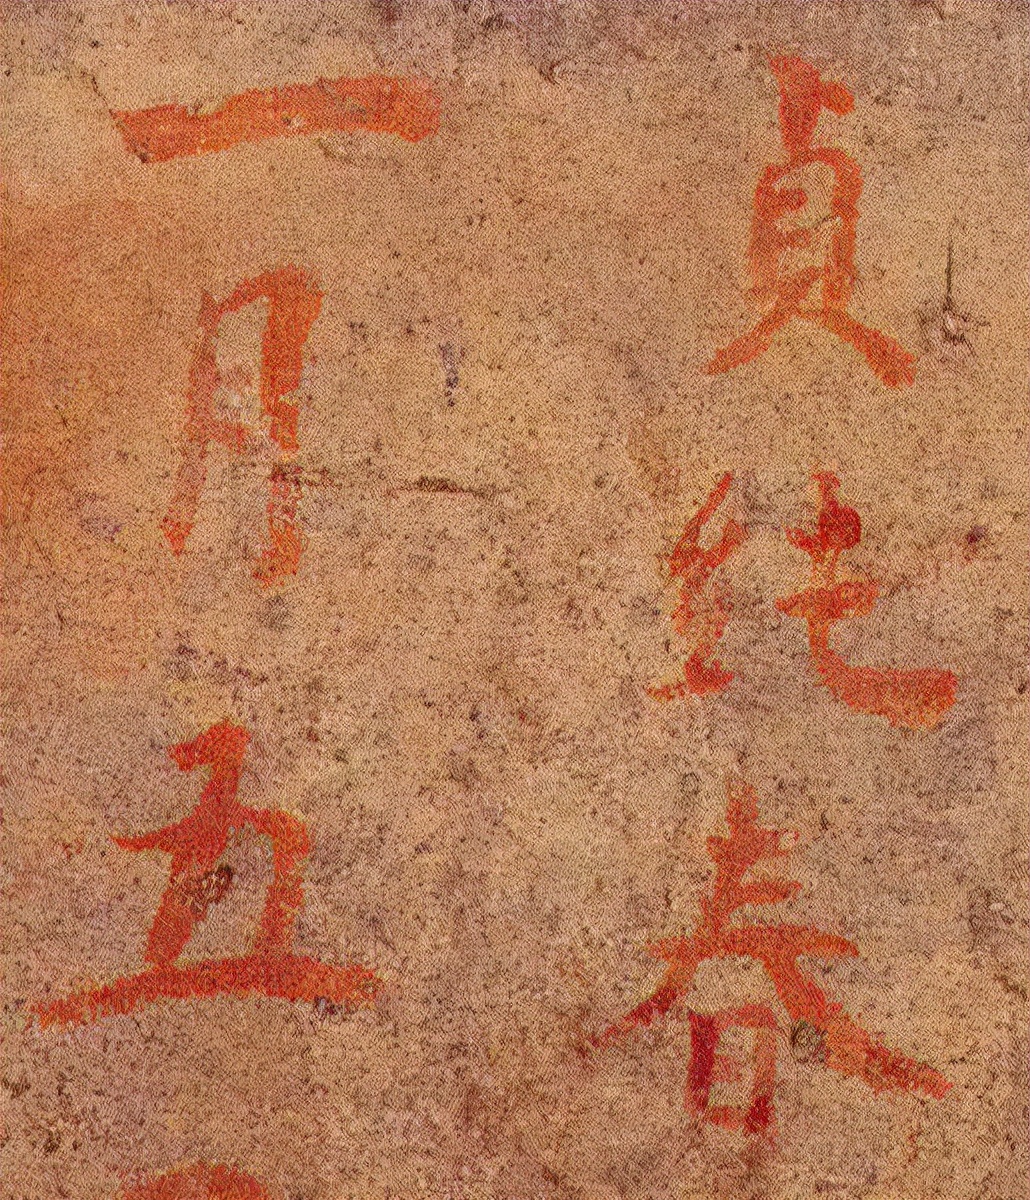 貞純春
一月五